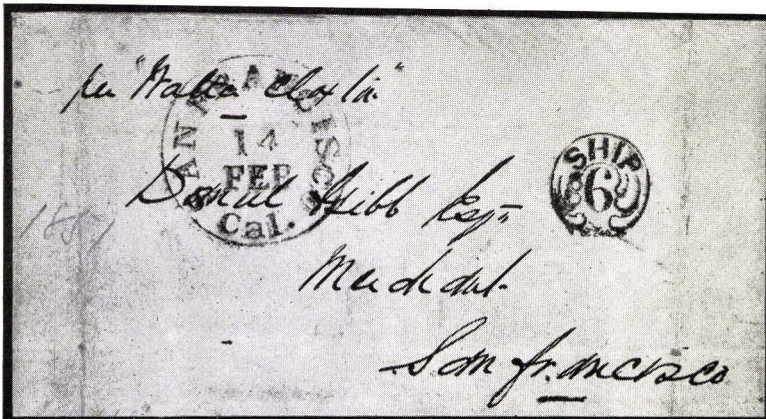 per "Walter Claxton"
SAN FRANCISCO
14
FEB
Cal.
SHIP
6
Gibb Esqr
1851
Merchant
San Francisco